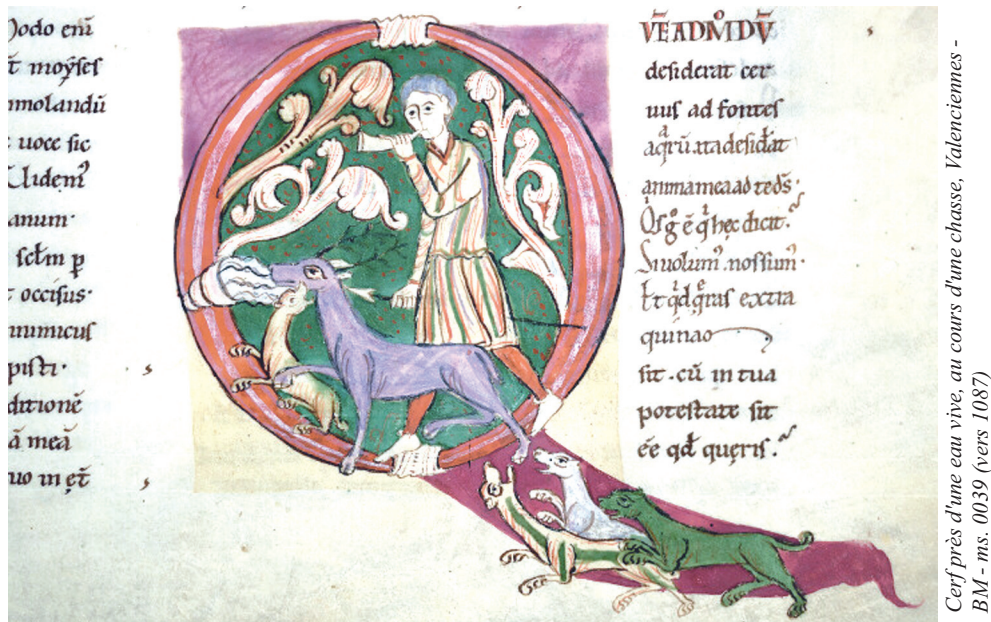 modo eni
t moyses
mmolandu
uoce sic
Uidem
anum·
sclm p
occisus·
inimicus
pisti·
ditione
ā meā
uo in et
VEADMDV
desiderat cer
uus ad fontes
aqrū. ita desidat
anima mea ad te ds·
Qs g ē q hęc dicit.
Si uolum. nossum·
Et qd qras extra
qui nao
sit. cū in tua
potestate sit
ēe qd queris.
Cerf près d'une eau vive, au cours d'une chasse, Valenciennes -
BM - ms. 0039 (vers 1087)